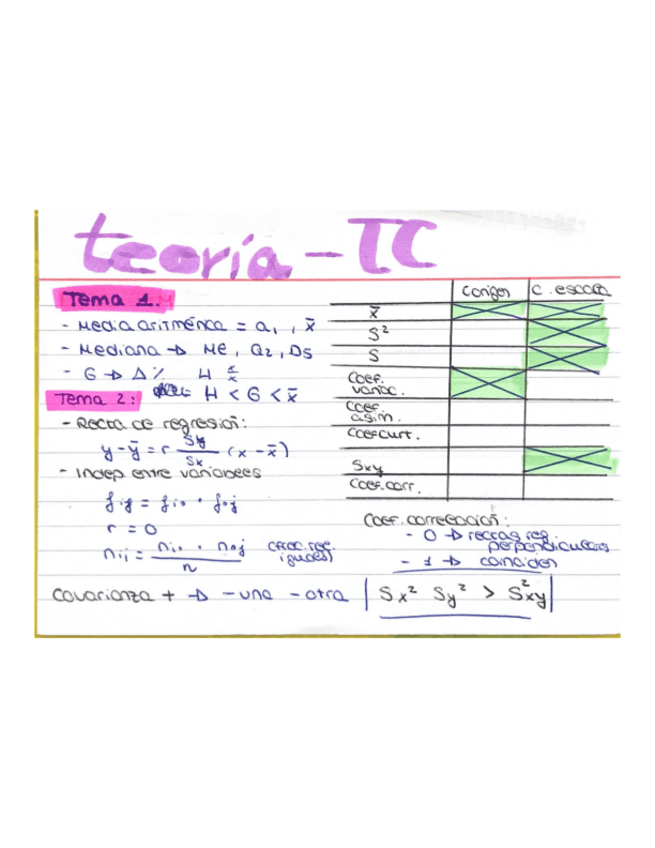 teoría - TC
Tema 1.
- Media aritmética = a₁, x̄
- Mediana → Me, Q₂, D₅
- G → Δ%   H
H < G < x̄
Tema 2:
- Recta de regresión:
y - ȳ = r Sy/Sx (x - x̄)
- Indep entre variables
fij = fi• • f•j
r = 0
nij = ni• • n•j / n (frec. rel. iguales)
c.origen   c. escala
x̄
S²
S
Coef. variac.
Coef. asim.
Coef curt.
Sxy
Coef. corr.
Coef. correlación:
- 0 → rectas reg. perpendiculares
- 1 → coinciden
covarianza + → - una - otra   | Sx² Sy² > S²xy |